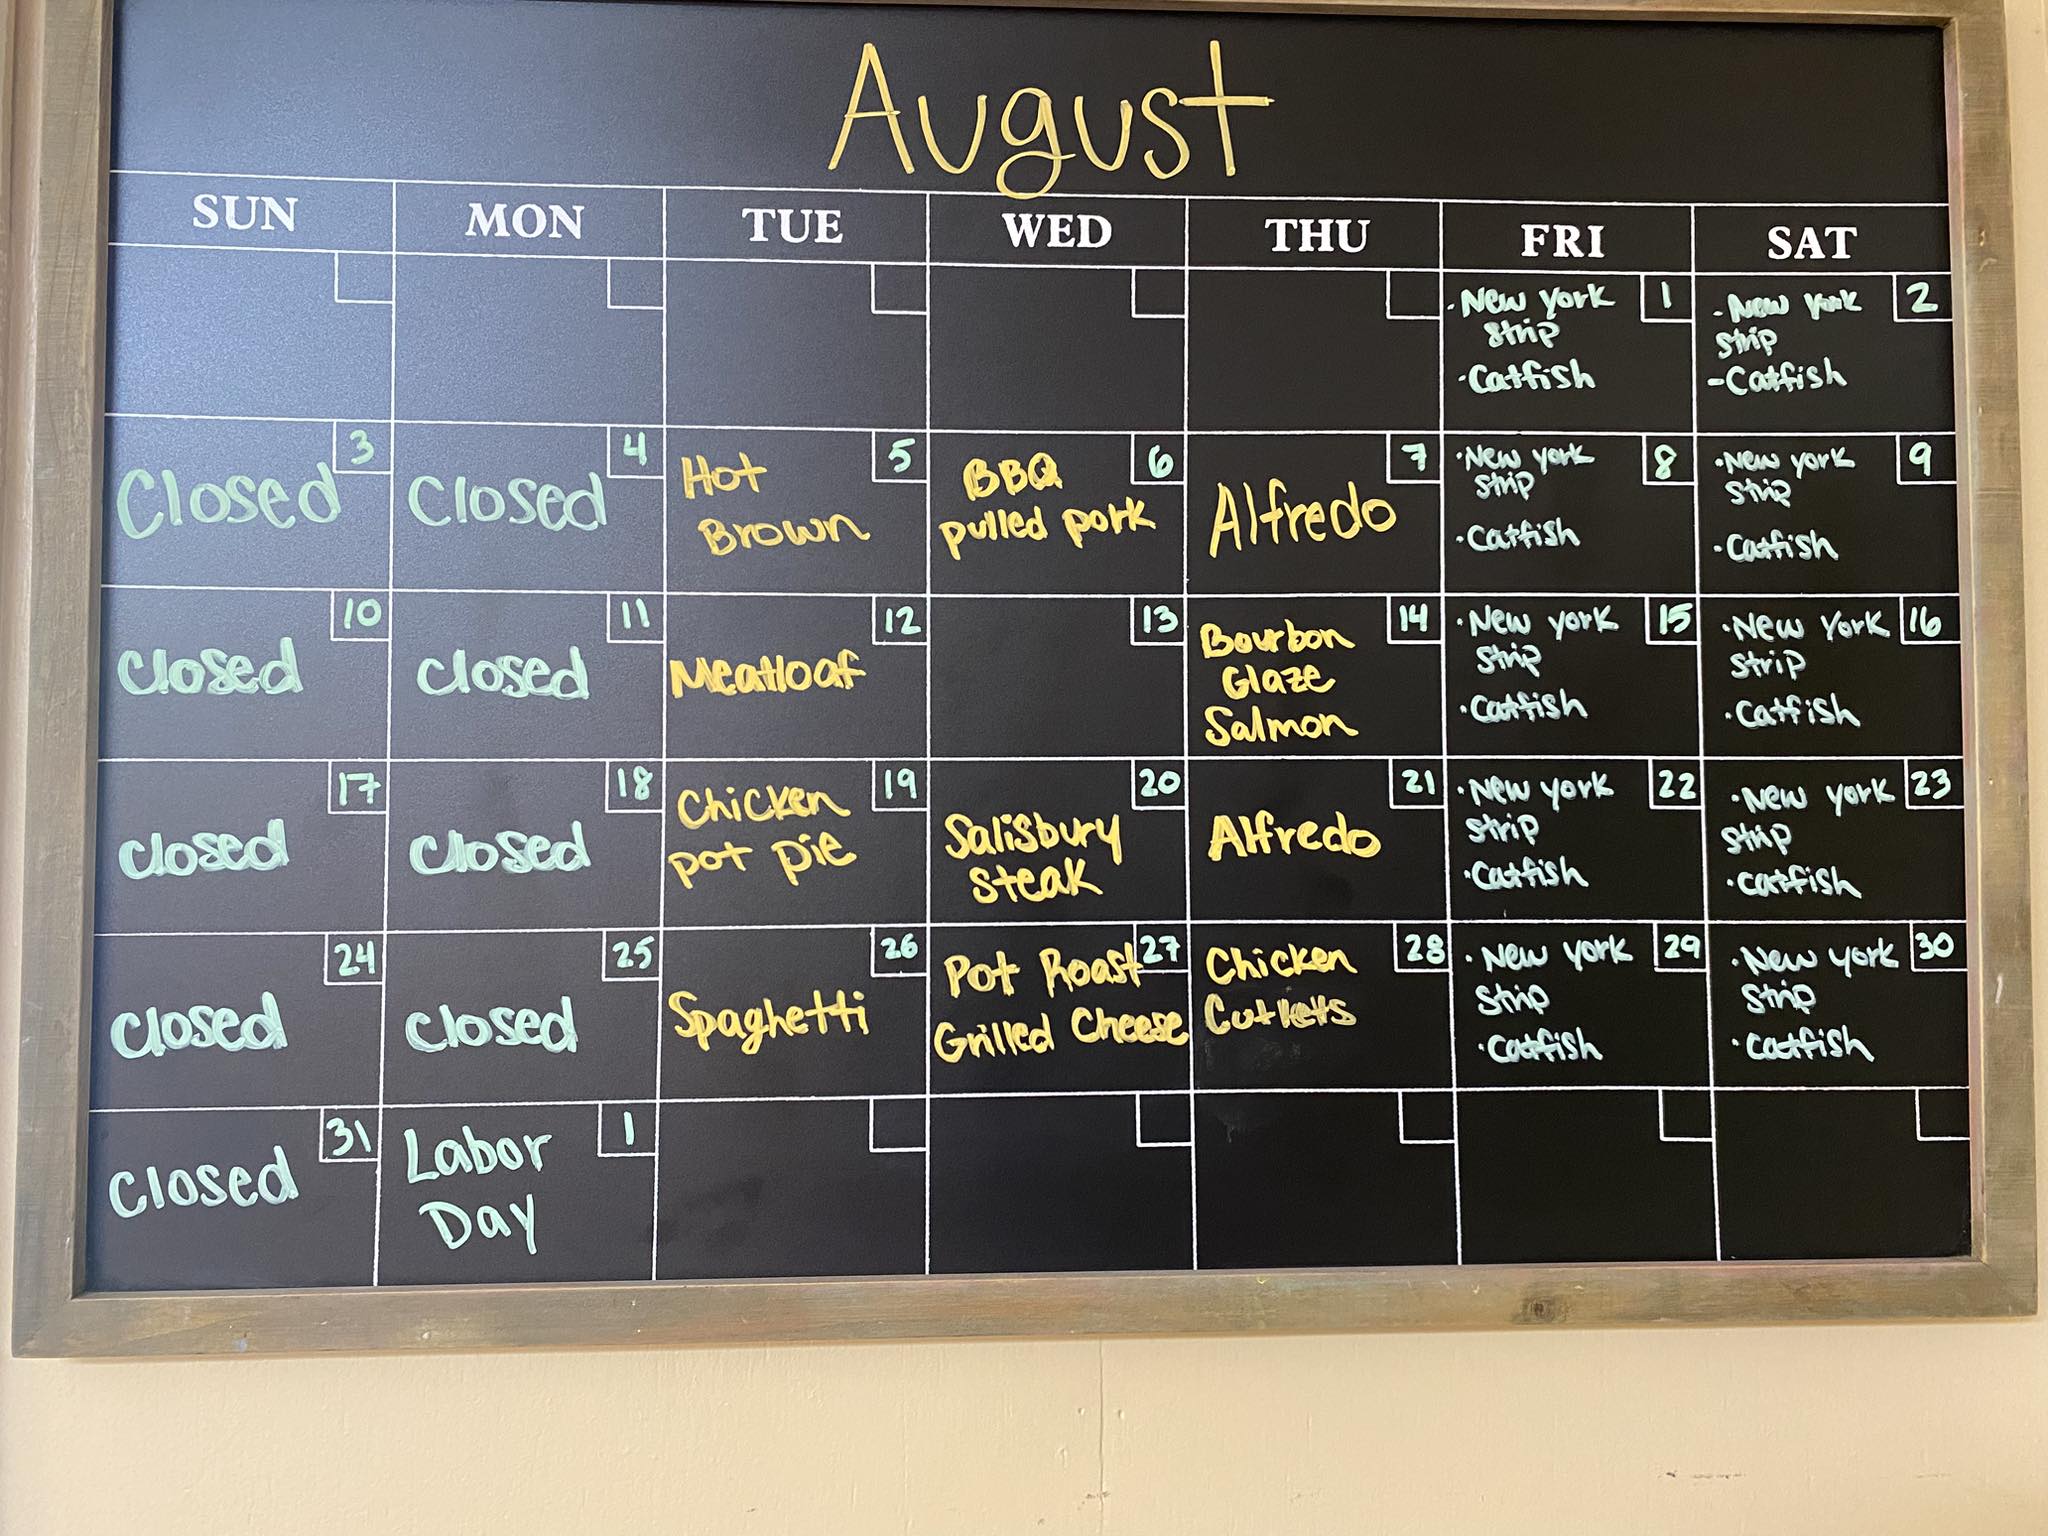 August
SUN MON TUE WED THU FRI SAT
1
· New York
strip
· Catfish
2
- New York
strip
- Catfish
3
Closed
4
Closed
5
Hot
Brown
6
BBQ
pulled pork
7
Alfredo
8
· New York
strip
· Catfish
9
· New York
strip
· Catfish
10
Closed
11
Closed
12
Meatloaf
13
14
Bourbon
Glaze
Salmon
15
· New York
strip
· Catfish
16
· New York
strip
· Catfish
17
Closed
18
Closed
19
Chicken
pot pie
20
Salisbury
steak
21
Alfredo
22
· New York
strip
· Catfish
23
· New York
strip
· Catfish
24
Closed
25
Closed
26
Spaghetti
27
Pot Roast
Grilled Cheese
28
Chicken
Cutlets
29
· New York
strip
· Catfish
30
· New York
strip
· Catfish
31
Closed
1
Labor
Day